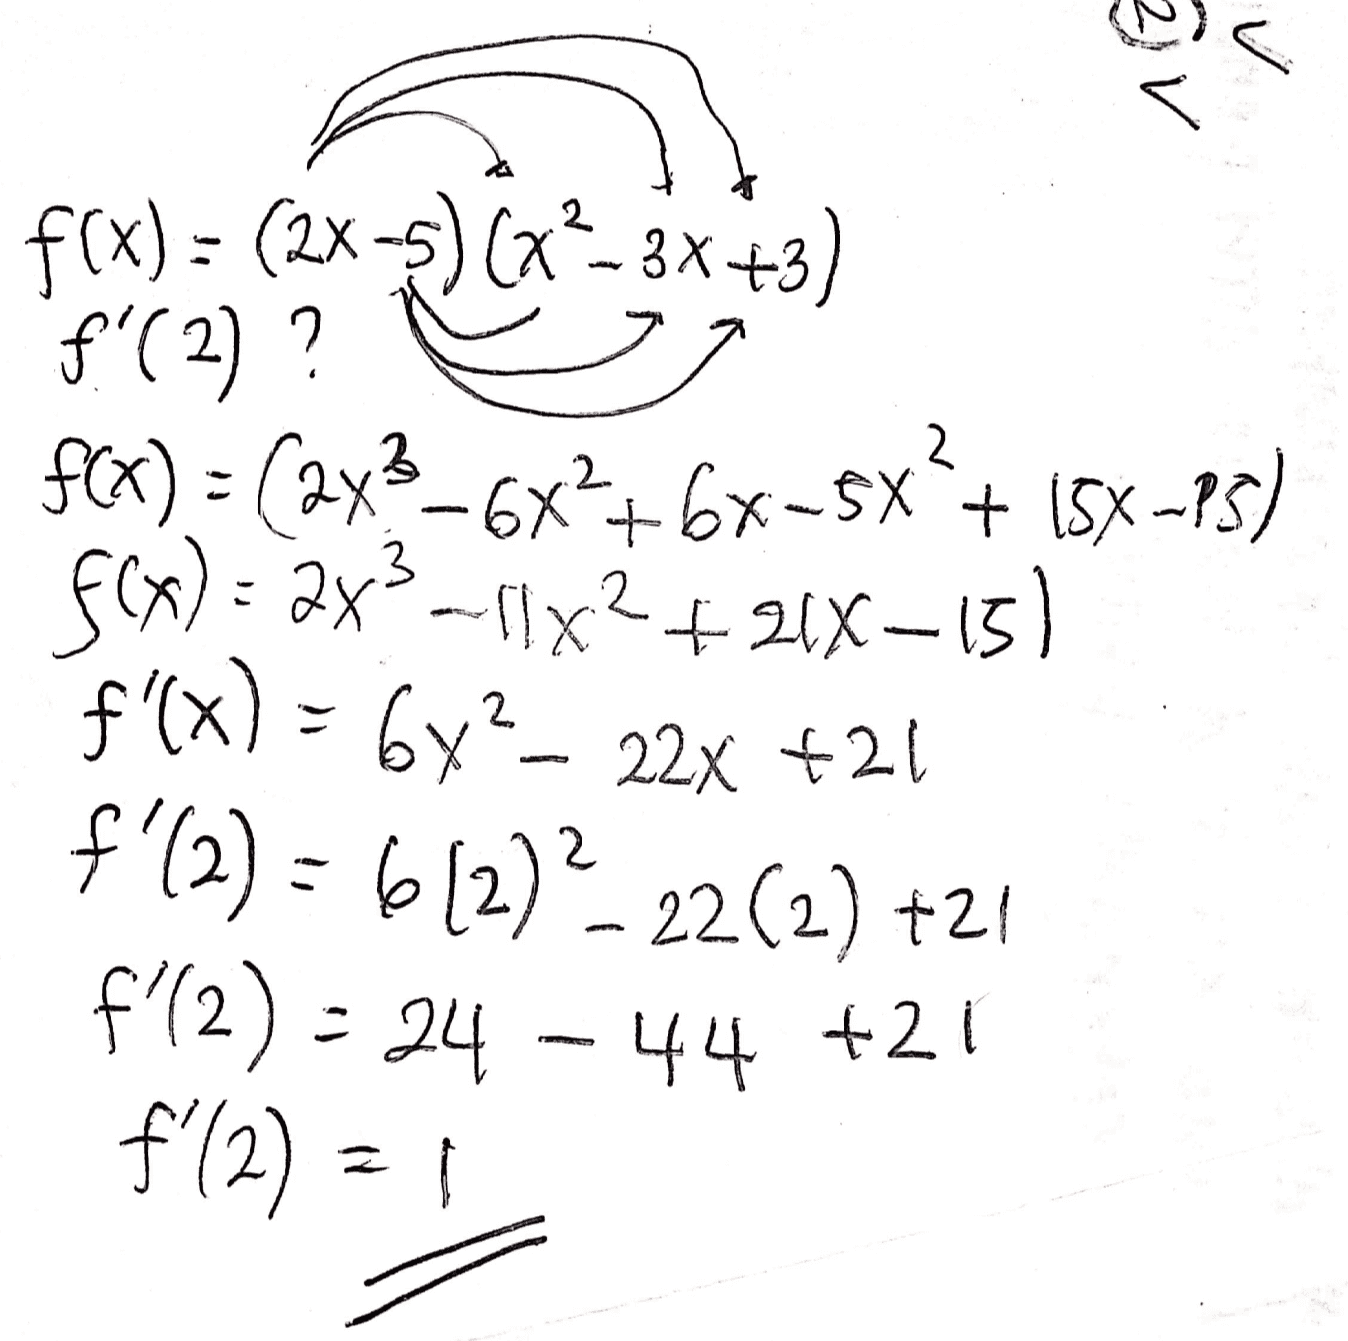 f(x) = (2x-5)(x²-3x+3)
f'(2) ?
f(x) = (2x³-6x²+6x-5x²+15x-15)
f(x) = 2x³-11x²+21x-15)
f'(x) = 6x²-22x+21
f'(2) = 6(2)²-22(2)+21
f'(2) = 24-44+21
f'(2) = 1